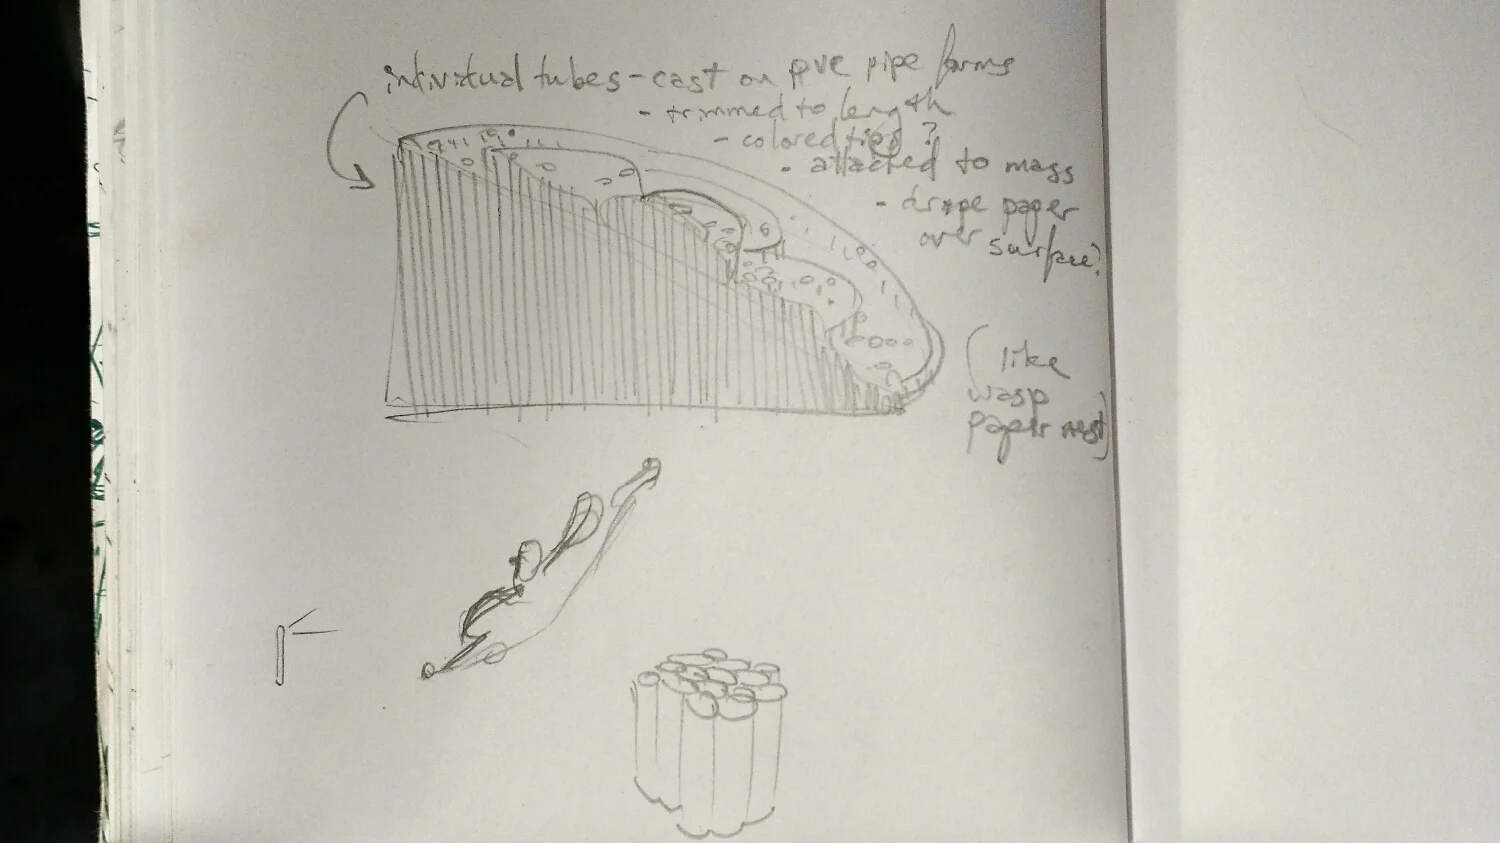 individual tubes - cast on pvc pipe forms
- trimmed to length
- colored tips?
- attached to mass
- drape paper
over surface?
(like
wasp
paper nest)